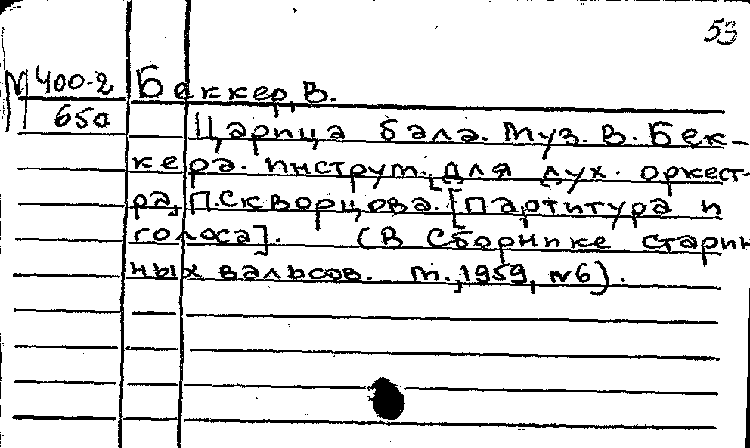 53
М 400-2 Беккер, В.
65а Царица бала. Муз. В. Бек-
кера. Инструм. [для дух. оркест-
ра] П. Скворцова. [Партитура и
голоса]. (В сборнике старин
ных вальсов. М., 1959, №6).